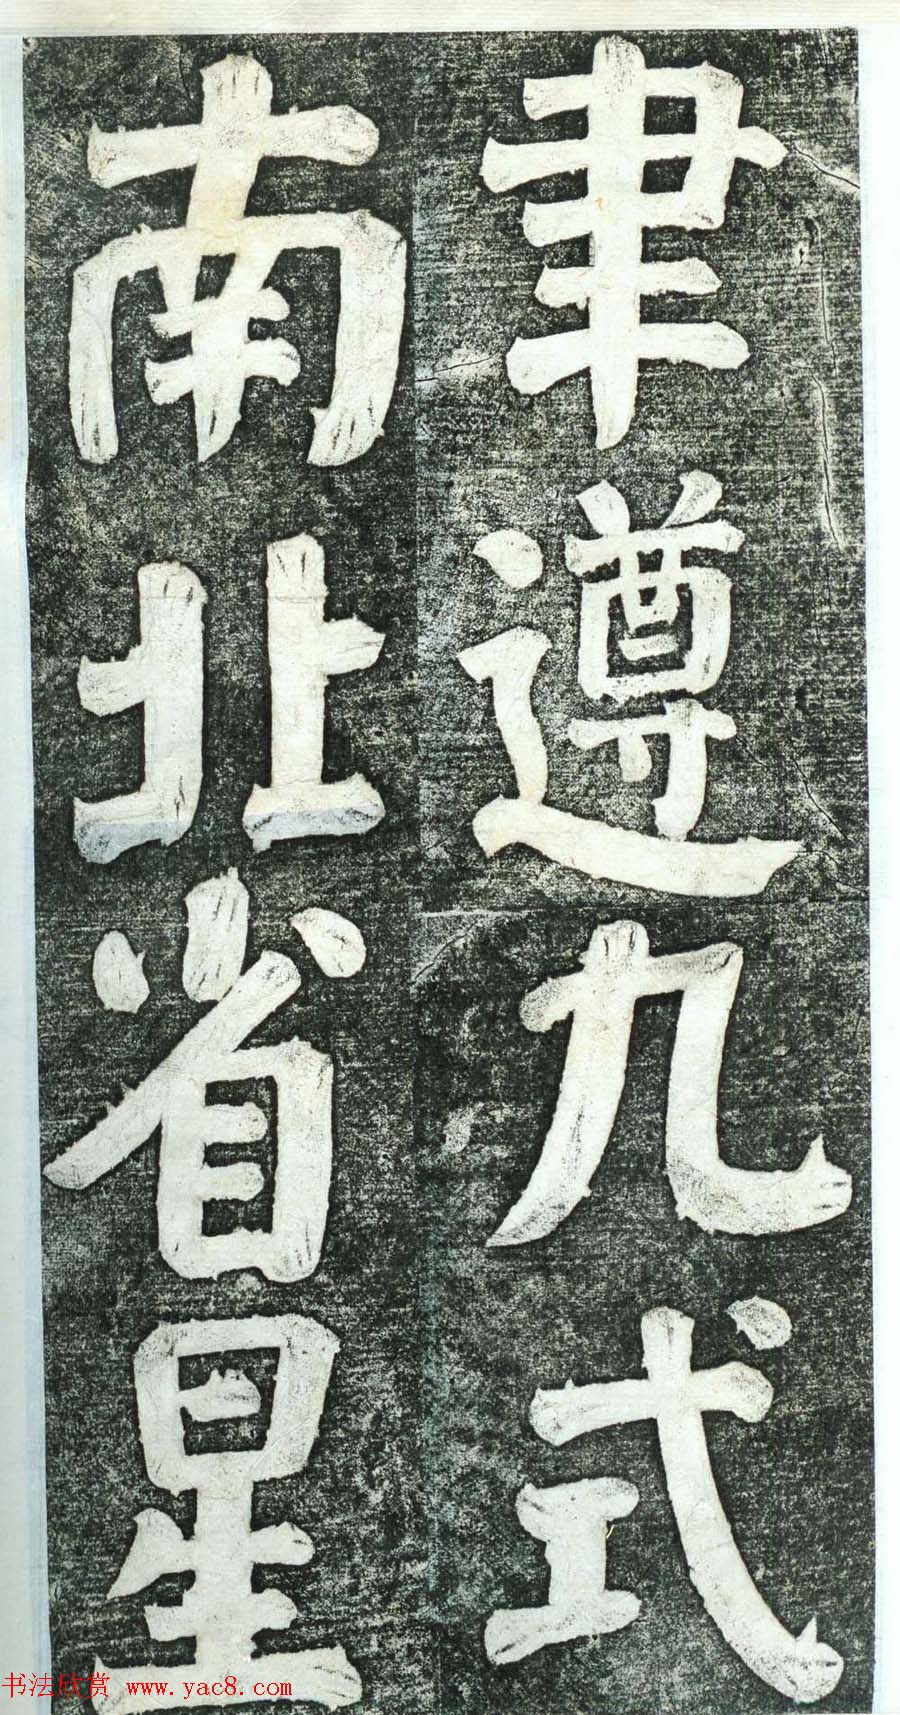 聿遵九式
南北省星
书法欣赏 www.yac8.com